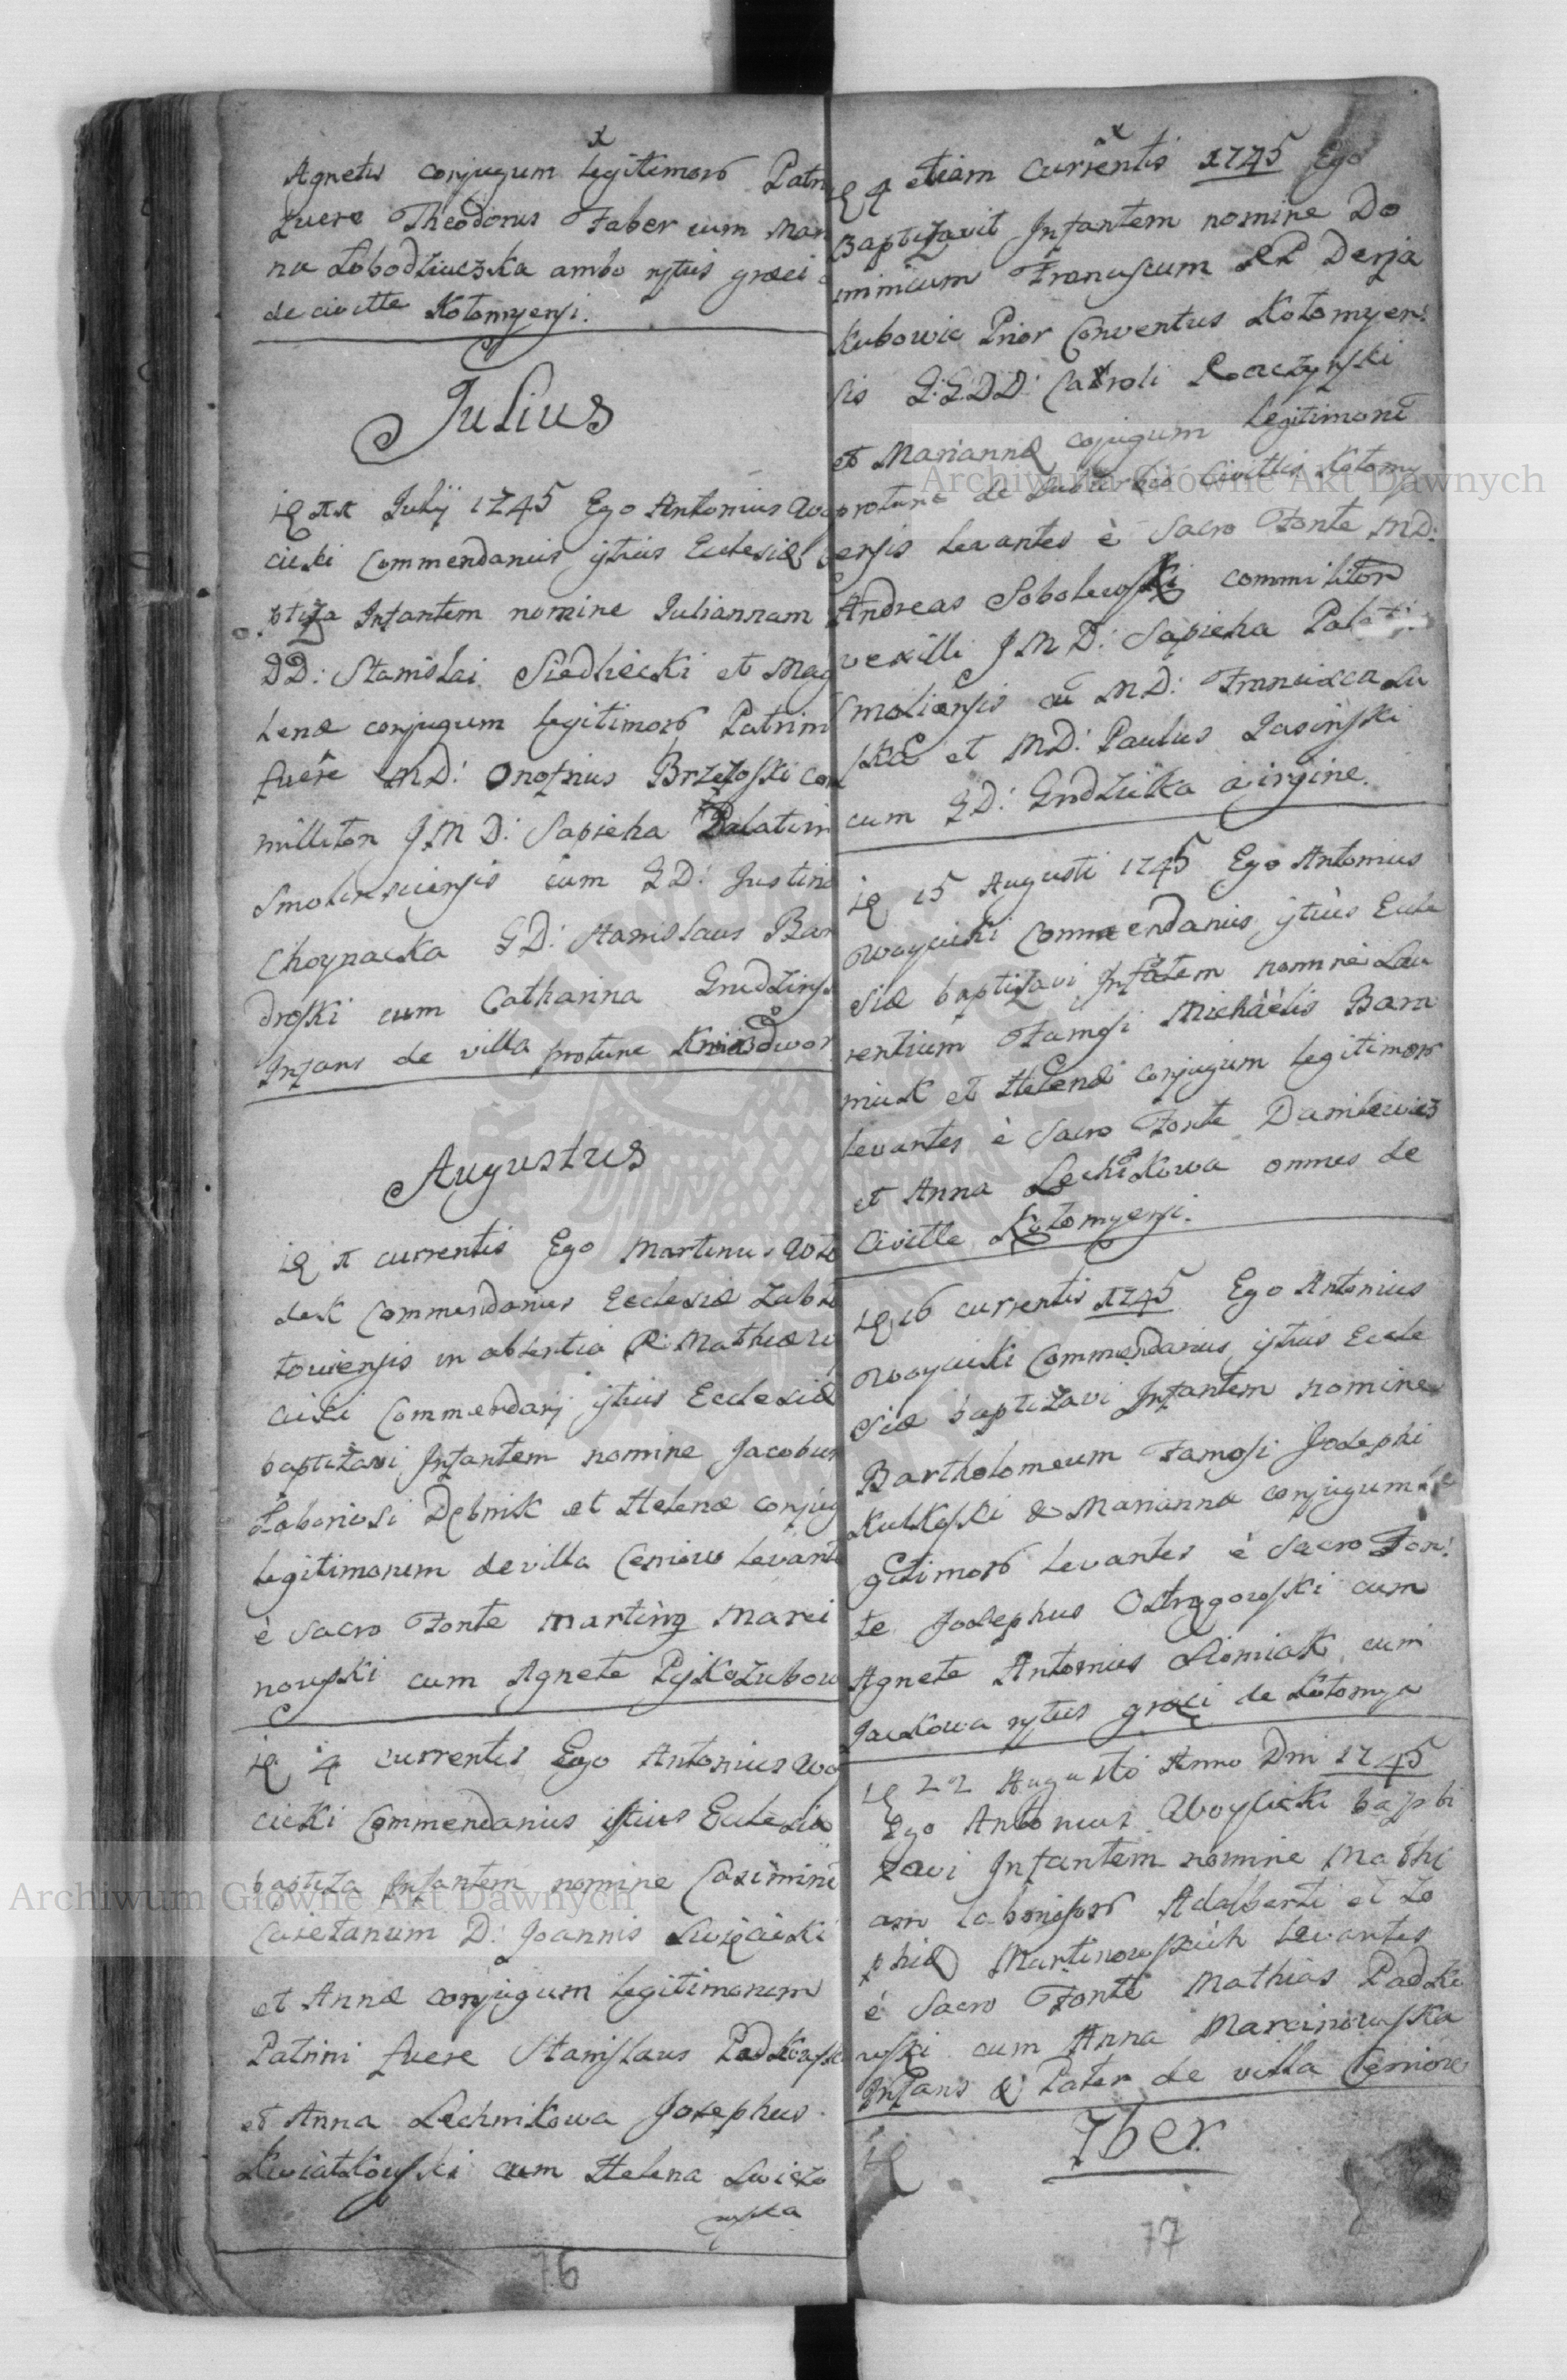 Agnetis conjugum legitimoru Patri
fuere Theodorus Faber cum Mari
na Łobodziaczka ambo rytus graeci
de civitte Kołomyensi.
Julius
Julij 1745 Ego Antonius Woy
cicki Commendarius istius Ecclesiae
Infantem nomine Juliannam
DD: Stanislai Siedliecki et Mag
lenae conjugum legitimoru Patrini
fuere MD: Onofrius Brzezoski com
milliton J.M D: Sapieha Palatini
Smolinsciensis cum GD: Justina
Choynacka GD: Stanislaus Ban
droski cum Catharina Grudzinska
Infans de villa protunc Kniazdwor
Augustus
currentis Ego Martinus Wło
dek Commendarius Ecclesiae Zabło
toviensis in absentia R: Mathiae Woy
cicki Commendarij istius Ecclesiae
baptizavi Infantem nomine Jacobum
Laboriosi Dębnik et Helenae conjug
legitimorum de villa Ceniow levante
è Sacro Fonte Martinq Marci
nowski cum Agnete Pijkozubow
4 currentis Ego Antonius Woy
cicki Commendarius istius Ecclesiae
baptiza Infantem nomine Casimiru
Caietanum D: Joannis Swięcicki
et Annae conjugum legitimorum
Patrini fuere Stanislaus Padkowski
et Anna Lechnikowa Josephus
Kwiatkowski cum Helena Swiezo
wska
16
4 etiam Currentis 1745 Ego
Baptizavit Infantem nomine Do
minicum Franciscum RP Derja
kubowic Prior Conventus Kołomyen:
sis G:GDD: Caroli Raczynski
et Mariannae cojugum legitimoru
protunc de suburbio Civittis Kołomy
ensis levantes è Sacro Fonte MD:
Andreas Sobolewski commiliton
vexilli JMD: Sapieha Palati
Smoliensis cu MD: Francisca Lu
ska et MD: Paulus Jasinski
cum GD: Grudziska virgine.
15 Augusti 1745 Ego Antonius
Woycicki Commendarius istius Eccle
siae baptizavi Infatem nomine Lau
rentium Famosi Michaëlis Bara
niuk et Helenae conjugum legitimoru
levantes è Sacro Fonte Danilewicz
et Anna Lechnikowa omnes de
Civitte Kołomyensi.
16 currentis 1745 Ego Antonius
Woycicki Commendarius istius Eccle
siae baptizavi Infantem nomine
Bartholomeum Famosi Josephi
Kulkoski & Marianna conjugum le
gitimoru levantes è Sacro Fon:
te Josephus Ostrzgowski cum
Agnete Antonius Słomiak cum
Jackowa rytus graeci de Kołomya
22 Augusti Anno Dni 1745
Ego Antonius Woycicki bapti
zavi Infantem nomine Mathi
am laboriosoru Adalberti et Zo
phiae Martinowskich levantes
è Sacro Fonte Mathias Padko
wski cum Anna Marcinowska
Infans & Pater de villa Ceniow
7ber
17
Archiwum Główne Akt Dawnych
Archiwum Główne Akt Dawnych